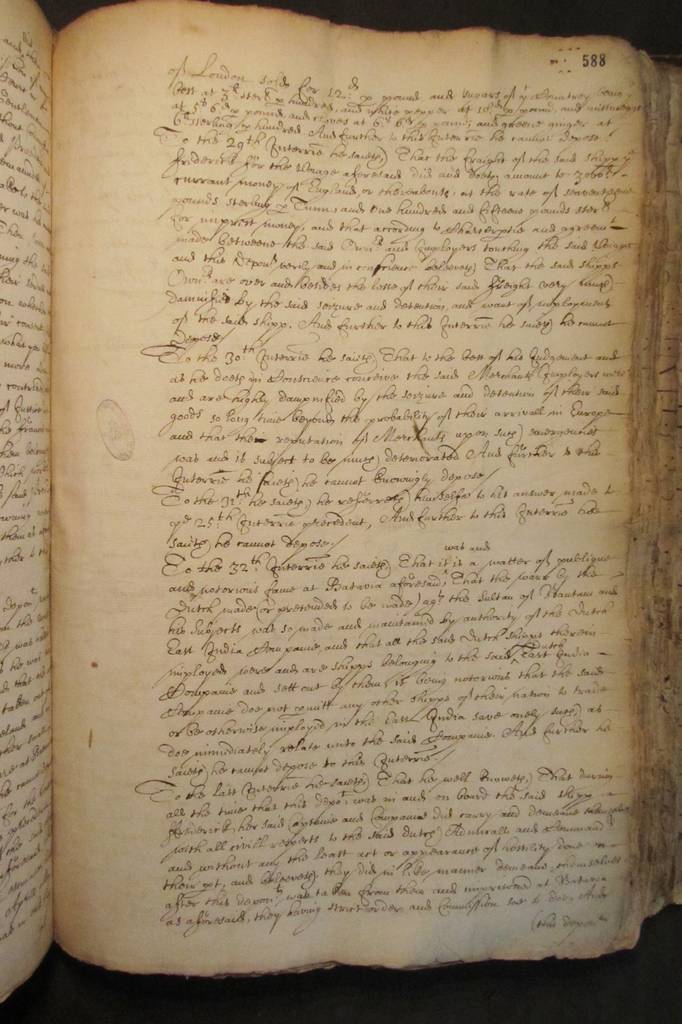 588
of London sold for 12d p pound and sugars of ye Countrey being
best at 3li sterl p hundred, and white pepper at 18d p pound, and nuttmeggs
at 5s 6d p pound and cloves at 6s 6d p pound, and greene ginger at
sterling p hundred. And further to this Interrie he cannot depose
To the 29th Interrie he saieth, That the fraight of the said shipp ye
Frederick for the voiage aforesaid did and doeth amount to
currant money of England or thereabouts, at the rate of seaventeene
pounds sterling p Tunn, and one hundred and fifteene pounds sterl
for imprest money, and that according to Charterptie and agreemt
made betweene the said Ownrs and Employers touching the said voiage
and this Deponent verily and in conscience beleeveth That the said shipps
Ownrs are over and besides the losse of their said freight very much
damnified by the said seizure and detention, and want of imployment
of the said shipp. And further to this Interrie he saieth he cannot
depose
To the 30th Interrie he saieth, That to the best of his Judgement and
as he doeth in Conscience conceive the said Merchants Employers were
and are highly dampnified by the seizure and detention of their said
goods so long time beyond the probability of their arrivall in Europe
and that the reputation of Merchants upon such
was and is subject to be much deteriorated And further to this
Interrie he saieth he cannot knowingly depose
To the 31th he saieth he referreth himselfe to his answer made to
ye 25th Interrie precedent, And further to this Interrie hee
saieth he cannot depose
To the 32th Interrie he saieth, That it is a matter of publique
was and
and notorious fame at Batavia aforesaid, That the warr by the
Dutch made (or pretended to be made) agt the Sultan of Bantam and
his subjects was so made and maintained by authority of the Dutch
East India Companie and that all the said Dutch shipps therein
imployed were and are shipps belonging to the said Dutch East India
Companie and sett out by them, it being notorious that the said
Companie doe not permitt any other shipps of their nation to trade
or be otherwise imployed in the East India save onely such as
doe immediately relate unto the said Companie. And further he
saieth he cannot depose to this Interrie
To the last Interrie he saieth, That he well knoweth, That during
all the time that this depont was in and on board the said shipp
Frederick, her said Captaine and Companie did carry and demeane themselves
with all civill respects to the said dutch Admirall and Command
and without any the least act or appearance of hostility done on
their pt, and beleeveth they did in like manner demeane themselves
after this deponent was taken from them and imprisoned at Batavia
as aforesaid, they having strict orders and Commission soe to doe, And
(this deponent